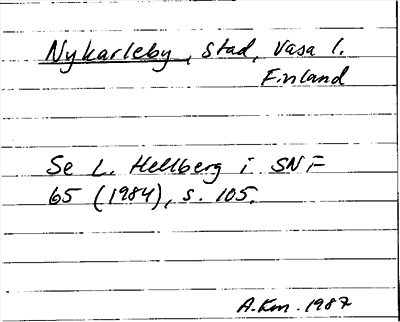 Nykarleby, stad, Vasa l.
Finland
Se L. Hellberg i SNF
65 (1984), s. 105.
A.Km. 1987